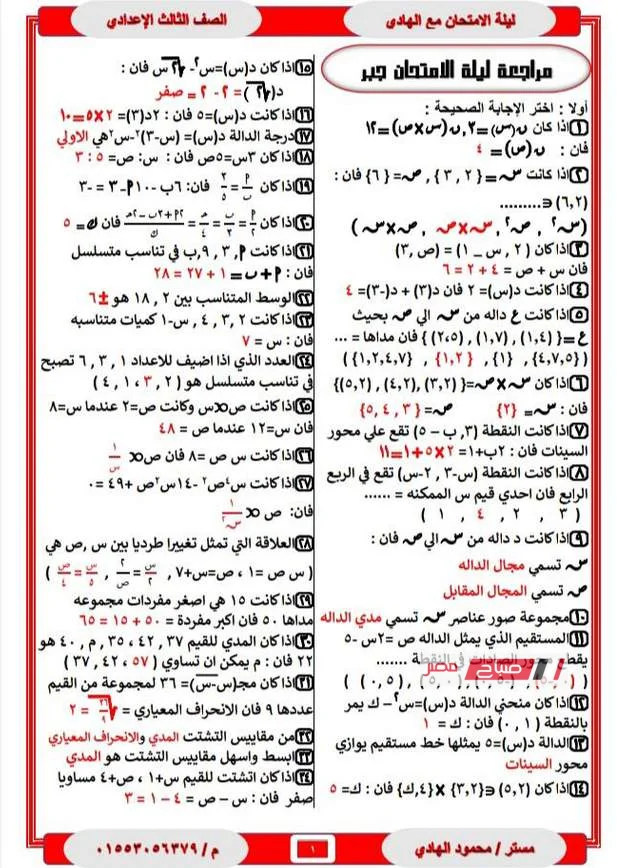 ليلة الامتحان مع الهادى
الصف الثالث الإعدادي
مراجعة ليلة الامتحان جبر
أولا : اختر الإجابة الصحيحة :
١ اذا كان ن(س) = ٣, ن(س × ص) = ١٢
فان : ن(ص) = ٤
٢ اذا كانت س = { ٢ , ٣ } , ص = { ٦ } فان :
(٦,٢) ∈ .........
(س٢ , ص٢ , س×ص , ص×س)
٣ اذا كان ( ٢ , س _ ١) = (ص ,٣)
فان س + ص = ٤ + ٢ = ٦
٤ اذا كانت د(س)= ٢ فان د(٣) + د(-٣)= ٤
٥ اذا كانت ع داله من س الي ص بحيث
ع = { (١,٤) , (١,٧) , (٢،٥) } فان مداها = ...
( {٤,٧,٥} , {١} , {١,٢} , {١,٢,٤,٧} )
٦ اذا كان س×ص={ (٢,٣) , (٢,٤) , (٥,٢)}
فان : س= {٢} ص= { ٣ , ٤ ,٥}
٧ اذا كانت النقطة (٣, ب – ٥) تقع علي محور
السينات فان : ٢ب+١= ٢×٥+١=١١
٨ اذا كانت النقطة (س-٣ , ٢-س) تقع في الربع
الرابع فان احدي قيم س الممكنه = ......
( ٣ , ٢ , ٤ , ١ )
٩ اذا كانت د داله من س الي ص فان :
س تسمي مجال الداله
ص تسمي المجال المقابل
١٠ مجموعة صور عناصر س تسمي مدي الداله
١١ المستقيم الذي يمثل الداله ص =٢س -٥
الصادات في النقطة .......
صباح مصر
١٢ اذا كان منحني الدالة د(س)=س٢– ك يمر
بالنقطة (١ , ٠) فان : ك = ١
١٣ الدالة د(س)=٥ يمثلها خط مستقيم يوازي
محور السينات
١٤ اذا كان (٥,٢) ∈{٣,٢} ×{٤,ك} فان : ك= ٥
١٥ اذا كان د(س)=س٢- √٢ س فان :
د(√٢) = ٢ - ٢ = صفر
١٦ اذا كانت د(س)=٥ فان : ٢د(٣)= ٢×٥=١٠
١٧ درجة الدالة د(س)= (س-٣)٢-س٢هي الاولي
١٨ اذا كان ٣س=٥ص فان : س: ص= ٥ : ٣
١٩ اذا كان أ/ب = ٥/٣ فان: ٦ب -١٠أ - ٣ = -٣
٢٠ اذا كان فان ك = ٥
٢١ اذا كانت أ, ٣ , ٩ ,ب في تناسب متسلسل
فان : أ + ب = ١ + ٢٧ = ٢٨
٢٢ الوسط المتناسب بين ٢ , ١٨ هو ±٦
٢٣ اذا كانت ٢ ,٣ , ٤ , س-١ كميات متناسبه
فان : س = ٧
٢٤ العدد الذي اذا اضيف للاعداد ١ , ٣ , ٦ تصبح
في تناسب متسلسل هو ( ٢ ,٣ ، ١ , ٤ )
٢٥ اذا كانت ص∝س وكانت ص=٢ عندما س=٨
فان س=١٢ عندما ص = ٤٨
٢٦ اذا كانت س ص = ٨ فان ص∝ ١/س
٢٧ اذا كانت س٤ص٢ -١٤س٢ص +٤٩ =٠
فان: ص ∝ ١/س٢
٢٨ العلاقة التي تمثل تغييرا طرديا بين س ,ص هي
( س ص =١ ، ص=س+٧ , س/٢ = ٢/ص , س/٥ = ص/٤ )
٢٩ اذا كانت ١٥ هي اصغر مفردات مجموعه
مداها ٥٠ فان اكبر مفردة = ٥٠ + ١٥ = ٦٥
٣٠ اذا كان المدي للقيم ٣٧ , ٤٢ ، ٣٥ , م , ٤٠ هو
٢٢ فان : م يمكن ان تساوي ( ٥٧ ، ٤٢ , ٣٧ )
٣١ اذا كان مج(س–س)= ٣٦ لمجموعة من القيم
عددها ٩ فان الانحراف المعياري = √٣٦/٩ = ٢
٣٢ من مقاييس التشتت المدي والانحراف المعياري
٣٣ ابسط واسهل مقاييس التشتت هو المدي
٣٤ اذا كان اتشتت للقيم س+١ ، ص+٤ مساويا
صفر فان : س – ص = ٤ – ١ = ٣
مستر / محمود الهادي
١
م / ٠١٥٥٣٠٥٦٣٧٩